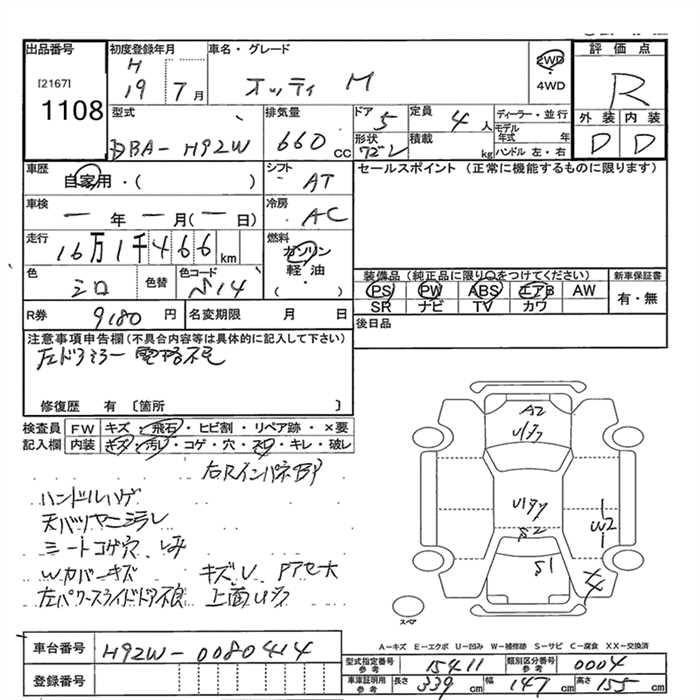 出品番号 初度登録年月 車名・グレード 評価点
[2167] H 19 7月 オッティ M 2WD R
1108 4WD
型式 排気量 ドア 5 定員 4人 ディーラー・並行 外装 内装
DBA-H92W 660 CC 形状 積載 kg モデル年式 年 D D
ハンドル 左・右
車歴 シフト セールスポイント (正常に機能するものに限ります)
自家用・( ) AT
車検 冷房
一年一月(一日) AC
走行 燃料
16万1千466km ガソリン
色 シロ 色替 色コード 軽油 装備品 (純正品に限り○をつけてください) 新車保証書
( ) PS PW ABS エアB AW 有・無
R券 9180円 名変期限 月 日 SR ナビ TV カワ
注意事項申告欄(不具合内容等は具体的に記入して下さい) 後日品
左ドアミラー電格不良
修復歴 有 〔箇所 〕
検査員 FW キズ・飛石・ヒビ割・リペア跡・×要
記入欄 内装 キズ・汚レ・コゲ・穴・スレ・キレ・破レ
ハンドルハゲ
シートコゲ穴、しみ
Wカバーキズ
左パワースライドドア不良
A2
U17
U17
W2
S2
S1
スペア
A-キズ E-エクボ U-凹み W-補修跡 S-サビ C-腐食 XX-交換済
車台番号 H92W-0080414 型式指定番号 参考 15411 類別区分番号 参考 0004
登録番号 車庫証明用 参考 長さ 339cm 幅 147cm 高さ 155cm